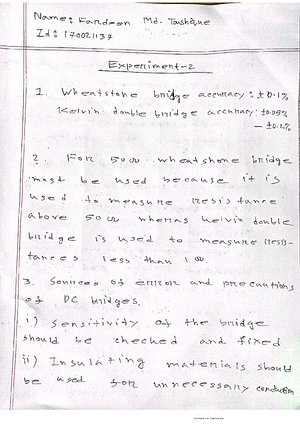 Name: Fardeen Md. Tashique
Id: 170021137
Experiment-2
1. Wheatstone bridge accuracy: ±0.1%
Kelvin double bridge accuracy: ±0.05%
— ±0.2%
2. For 50Ω wheatshone bridge
must be used because it is
used to measure resistance
above 50Ω wheras kelvin double
bridge is used to measure resis-
tances less than 1Ω
3. Sources of error and precautions
of DC bridges.
i) Sensitivity of the bridge
should be checked and fixed
ii) Insulating materials should
be used for unnecessary conduction